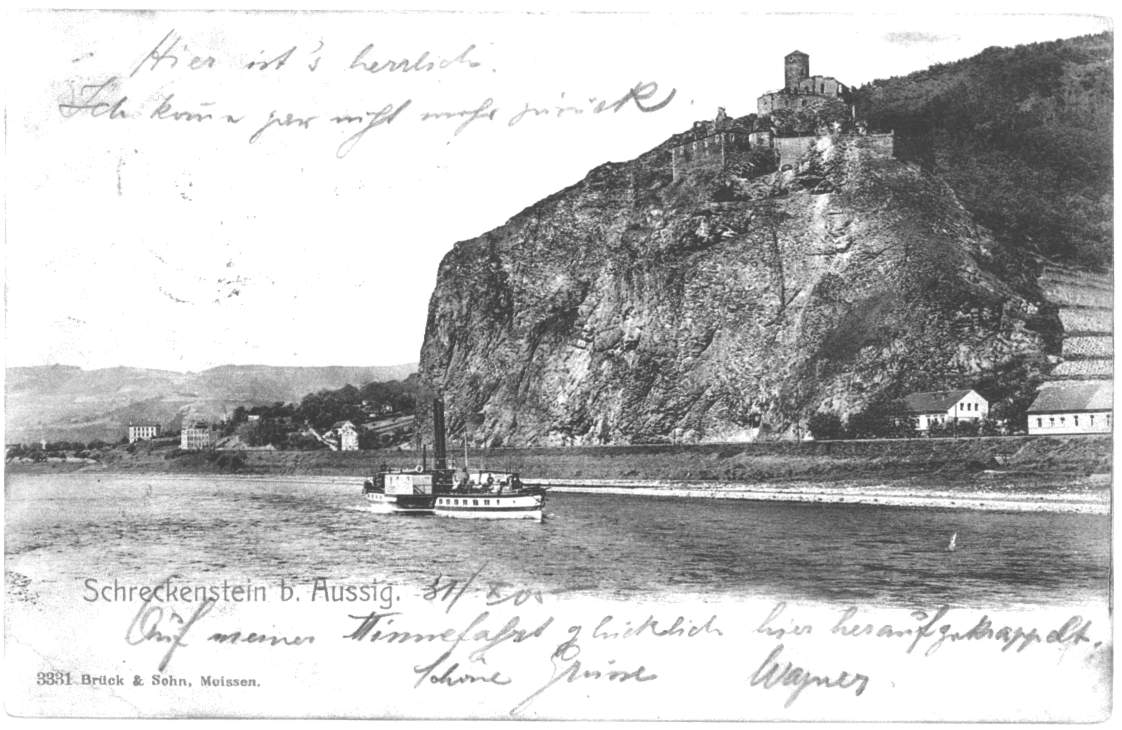 Hier ist's herrlich.
Ich kome gar nicht mehr zurück.
Schreckenstein b. Aussig. 31/X 05
Auf meiner glücklich hier heraufgekrappelt.
3331 Brück & Sohn, Meissen.
Schöne Grüsse Wagner.